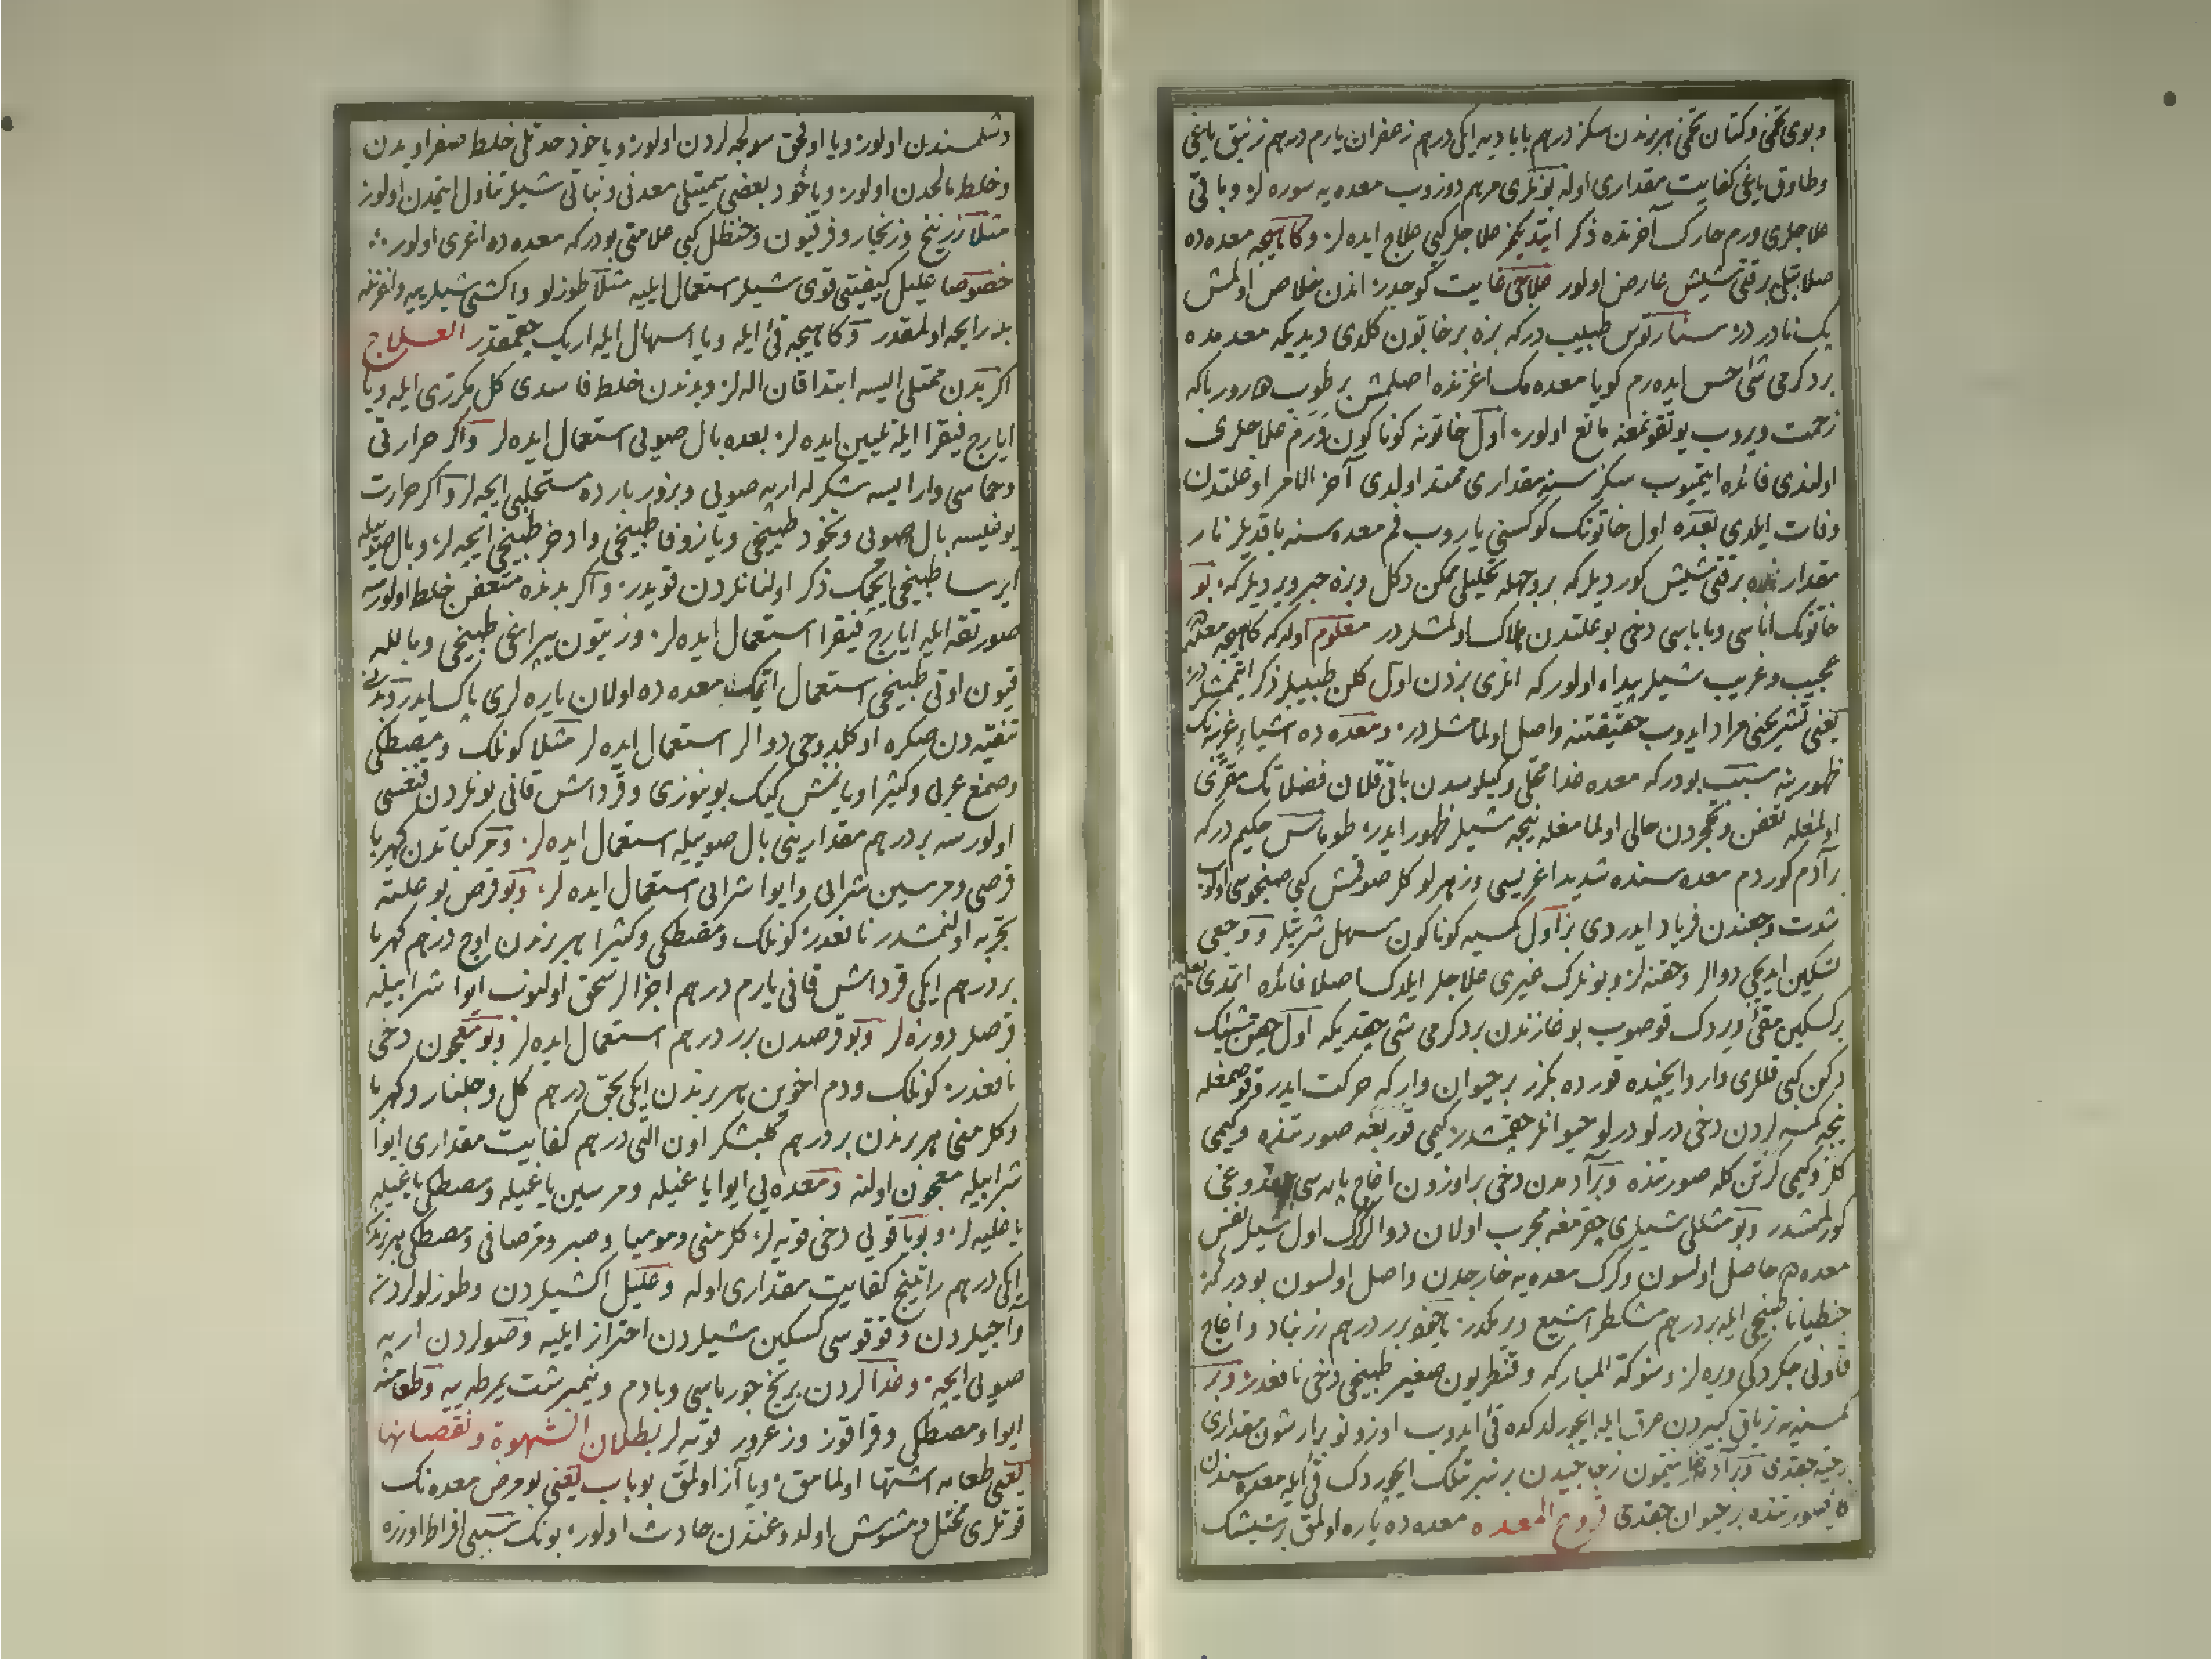 وبوى تخمى وكتان تخمى هر برندن سكز درهم بابادیه ایكى درهم زعفران یارم درهم زنبق یاغى
وطاوق یاغى كفایت مقدارى اوله بونلرى مرهم دوزوب معده یه سوره لر وباقى
علاجلرى ورم حارك آخرنده ذكر ایتدیكمز علاجلر كبى علاج ایده لر وكاهیجه معده ده
صلابتلى برقتى شیش عارض اولور علاجى غایت كوجدر اندن خلاص اولمش
پك نادر در طبیب دركه بزه برخاتون كلدى دیدیكه معدمده
بردكرمى شى حس ایده رم كویا معده مك اغزنده اصلمش برطوب هاروریاكه
زحمت ویروب یوتقونمغه مانع اولور اول خاتونه كوناكون ورم علاجلرى
اولندى فائده ایتمیوب سكز سنه مقدارى ممتد اولدى آخر الامر اوعلتدن
وفات ایلدى بعده اول خاتونك كوكسنى یاروب فم معده سنه باقدیلر نار
مقدارنده برقتى شیش كوردیلر كه بروجهله تحلیلى ممكن دكل وبزه خبر ویردیلر كه بو
خاتونك اناسى وباباسى دخى بوعلتدن هلاك اولمشلردر معلوم اوله كه كاهیجه معده ده
عجیب وغریب شیلر پیدا اولور كه انلرى بزدن اول كلن طبیبلر ذكر ایتمشلردر
یعنى تشریحنى مراد ایدوب حقیقتنه واصل اولمامشلردر ومعده ده اشیاء غریبه نك
ظهورینه سبب بودركه معده غذا محلى وكیلوسدن باقى قلان فضلاتك مقرى
اولمغله تعفن وتحجردن خالى اولمامغله نیجه شیلر ظهور ایدر طوماس حكیم دركه
برآدم كوردم معده سنده شدید اغریسى وزهرلو كلر صوقمش كبى صنجوسى اولوب
شدت وجعندن فریاد ایدردى بزاول كمسیه كوناكون مسهل شربتلر ووجعى
تسكین ایدیجى دوالر وحقنه لر وبونلرك غیرى علاجلر ایلدك اصلا فائده اتمدى
بركسكین مقئ ویردك قوصوب بوغازندن بردكرمى شى چقدیكه اول چقن شیئك
دكن كبى قللرى وار وایچنده قورده بكزر برحیوان واركه حركت ایدر قوصمغله
نیجه كمسه لردن دخى درلو درلو حیوانلر چقمشدر كیمى قوربغه صورتنده وكیمى
كلر وكیمى كرتن كله صورتنده وبرآدمدن دخى براوزون اغاج پاره سى چقدوغى
كورلمشدر وبو مثللى شیلرى چقرمغه مجرب اولان دوالر كرك اول شیلر نفس
معده ده حاصل اولسون وكرك معده یه خارجدن واصل اولسون بودركه
جنطیانا طبیخى ایله بردرهم مشكطرا مشیع ویرمكدر یاخود بردرهم زرنباد واغاج
قاونى چكردكى ویره لر وشوكة المباركه وقنطریون صغیر طبیخى دخى نافعدر وبر
كمسنه یه تریاق كبیردن عرق ایله ایچورلدكده قئ ایدوب اوزونلو برارشون مقدارى
برحیه چقدى وبرآدمه انتیمون زجاجیدن برشربتلك ایچوردك قئ ایله معده سندن
صورتنده برحیوان چقدى قروح المعده معده ده یاره اولمق برشیشك
دشلمسندن اولور ویا اوفق سولجه لردن اولور ویاخود حدتلى خلط صفراویدن
وخلط مالحدن اولور ویاخود بعضى سمیتلى معدنى ونباتى شیلر تناول ایتمدن اولور
مثلا زرنیخ وزنجار وفرفیون وحنظل كبى علامتى بودركه معده ده اغرى اولور
خصوصا علیل كیفیتى قوى شیلر استعمال ایلیه مثلا طوزلو واكشى شیلر یمه ونفوغنه
بد رایحه اولمقدر وكاهیجه قئ ایله ویا اسهال ایله اریك چقمقدر العلاج
اكر بدن ممتلى ایسه ابتدا قان اله لر وبدندن خلط فاسدى كل مكررى ایله ویا
ایارج فیقرا ایله تلیین ایده لر بعده بال صویى استعمال ایده لر واكر حرارتى
وحماسى وار ایسه شكر له ارپه صویى وبزور بارده مستحلبى ایچه لر واكر حرارت
یوغیسه بال صویى ونخود طبیخى ویا زوفا طبیخى واذخر طبیخى ایچه لر وبال صویله
ایرسا طبیخى ایچمك ذكر اولنانلردن قویدر واكر بدنده متعفن خلط اولورسه
صورتقه ایله ایارج فیقرا استعمال ایده لر وزیتون یپراغى طبیخى ویا لله
قیون اوتى طبیخى استعمال اتمك معده ده اولان یاره لرى پاك ایدر وبدنى
تنقیه دن صكره اوكلدیجى دوالر استعمال ایده لر مثلا كونلك ومصطكى
وصمغ عربى وكثیرا ویانمش كیك بوینوزى وقرداش قانى بونلردن قنغسى
اولورسه بردرهم مقدارینى بال صویله استعمال ایده لر ومركباتدن كهربا
قرصى ومرسین شرابى وایوا شرابى استعمال ایده لر وبو قرص بوعلته
تجربه اولنمشدر نافعدر كونلك ومصطكى وكثیرا هر برندن اوچ درهم كهربا
بردرهم ایكى قرداش قانى یارم درهم اجزالر سحق اولنوب ایوا شرابیله
قرصلر دوزه لر وبو قرصدن برر درهم استعمال ایده لر وبو معجون دخى
نافعدر كونلك ودم اخوین هر برندن ایكى بچق درهم كل وجلنار وكهربا
وكلرمنى هر برندن بردرهم كلبشكر اون التى درهم كفایت مقدارى ایوا
شرابیله معجون اولنه ومعده یى ایوا یاغیله ومرسین یاغیله ومصطكى یاغیله
یاغلیه لر وبو یاقویى دخى قویه لر كلرمنى ومومیا وصبر ومرصافى ومصطكى هر برندن
ایكى درهم راتینج كفایت مقدارى اوله وعلیل اكشیلردن وطوزلولردن
واجیلردن وقوقوسى كسكین شیلردن احتراز ایلیه وصولردن ارپه
صویى ایچه وغذالردن برنج چورباسى وبادم ونیمبرشت یمرطه ییه وطعامنه
ایوا ومصطكى وقراقوز وزعرور قویه لر بطلان الشهوة ونقصانها
یعنى طعامه اشتها اولمامق ویا آز اولمق بوباب یعنى بومرض معده نك
قوتلرى مختل ومشوش اولدوغندن حادث اولور بونك سببى افراط اوزره